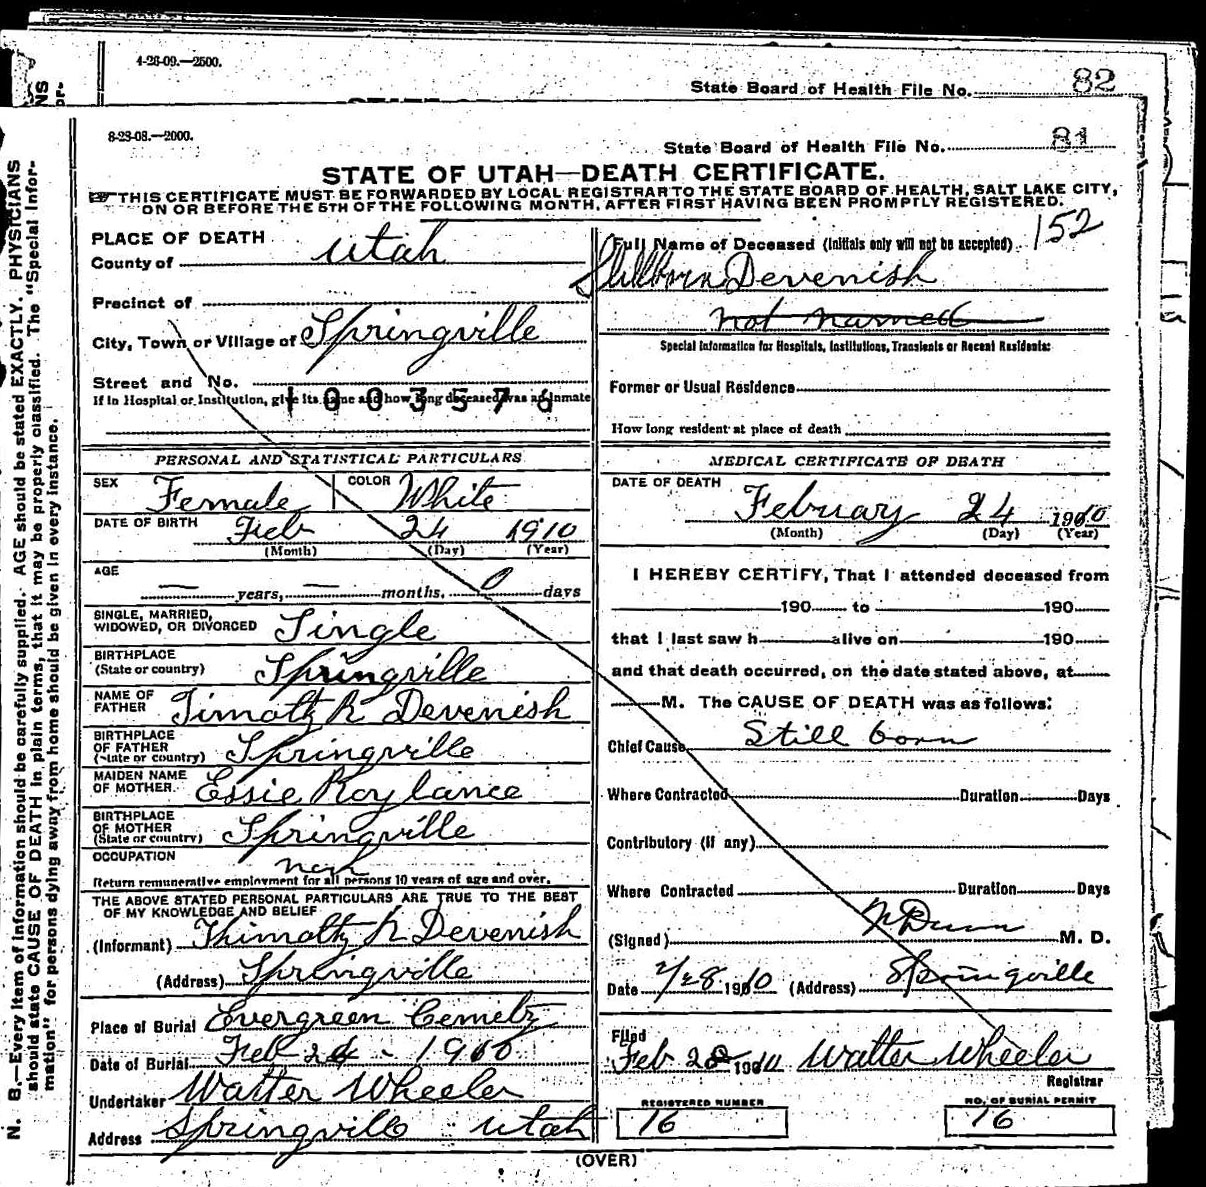 4-26-09.—2500.
State Board of Health File No. 82
8-23-08.—2000.
State Board of Health File No. 81
STATE OF UTAH—DEATH CERTIFICATE.
THIS CERTIFICATE MUST BE FORWARDED BY LOCAL REGISTRAR TO THE STATE BOARD OF HEALTH, SALT LAKE CITY,
ON OR BEFORE THE 5TH OF THE FOLLOWING MONTH, AFTER FIRST HAVING BEEN PROMPTLY REGISTERED.
152
PLACE OF DEATH
County of Utah
Precinct of
City, Town or Village of Springville
Street and No.
1003576
If in Hospital or Institution, give its name and how long deceased was an inmate
Full Name of Deceased (Initials only will not be accepted)
Stillborn Devenish
not named
Special Information for Hospitals, Institutions, Transients or Recent Residents:
Former or Usual Residence
How long resident at place of death
PERSONAL AND STATISTICAL PARTICULARS
SEX Female COLOR White
DATE OF BIRTH Feb 24 1910
(Month) (Day) (Year)
AGE
— years, — months, 0 days
SINGLE, MARRIED,
WIDOWED, OR DIVORCED Single
BIRTHPLACE
(State or country) Springville
NAME OF
FATHER Timothy R Devenish
BIRTHPLACE
OF FATHER
(State or country) Springville
MAIDEN NAME
OF MOTHER Essie Roylance
BIRTHPLACE
OF MOTHER
(State or country) Springville
OCCUPATION
Return remunerative employment for all persons 10 years of age and over.
THE ABOVE STATED PERSONAL PARTICULARS ARE TRUE TO THE BEST
OF MY KNOWLEDGE AND BELIEF
(Informant) Thimothy R Devenish
(Address) Springville
Place of Burial Evergreen Cemety
Date of Burial Feb 24 - 1910
Undertaker Walter Wheeler
Address Springville Utah
MEDICAL CERTIFICATE OF DEATH
DATE OF DEATH
February 24 1910
(Month) (Day) (Year)
I HEREBY CERTIFY, That I attended deceased from
190 to 190
that I last saw h alive on 190
and that death occurred, on the date stated above, at
M. The CAUSE OF DEATH was as follows:
Chief Cause Still born
Where Contracted Duration Days
Contributory (if any)
Where Contracted Duration Days
(Signed) Dunn M. D.
Date 2/28 1910 (Address) Springville
Filed
Feb 28 1910 Walter Wheeler
Registrar
REGISTERED NUMBER
16
NO. OF BURIAL PERMIT
16
(OVER)
N. B.—Every item of information should be carefully supplied. AGE should be stated EXACTLY. PHYSICIANS
should state CAUSE OF DEATH in plain terms, that it may be properly classified. The "Special Infor-
mation" for persons dying away from home should be given in every instance.